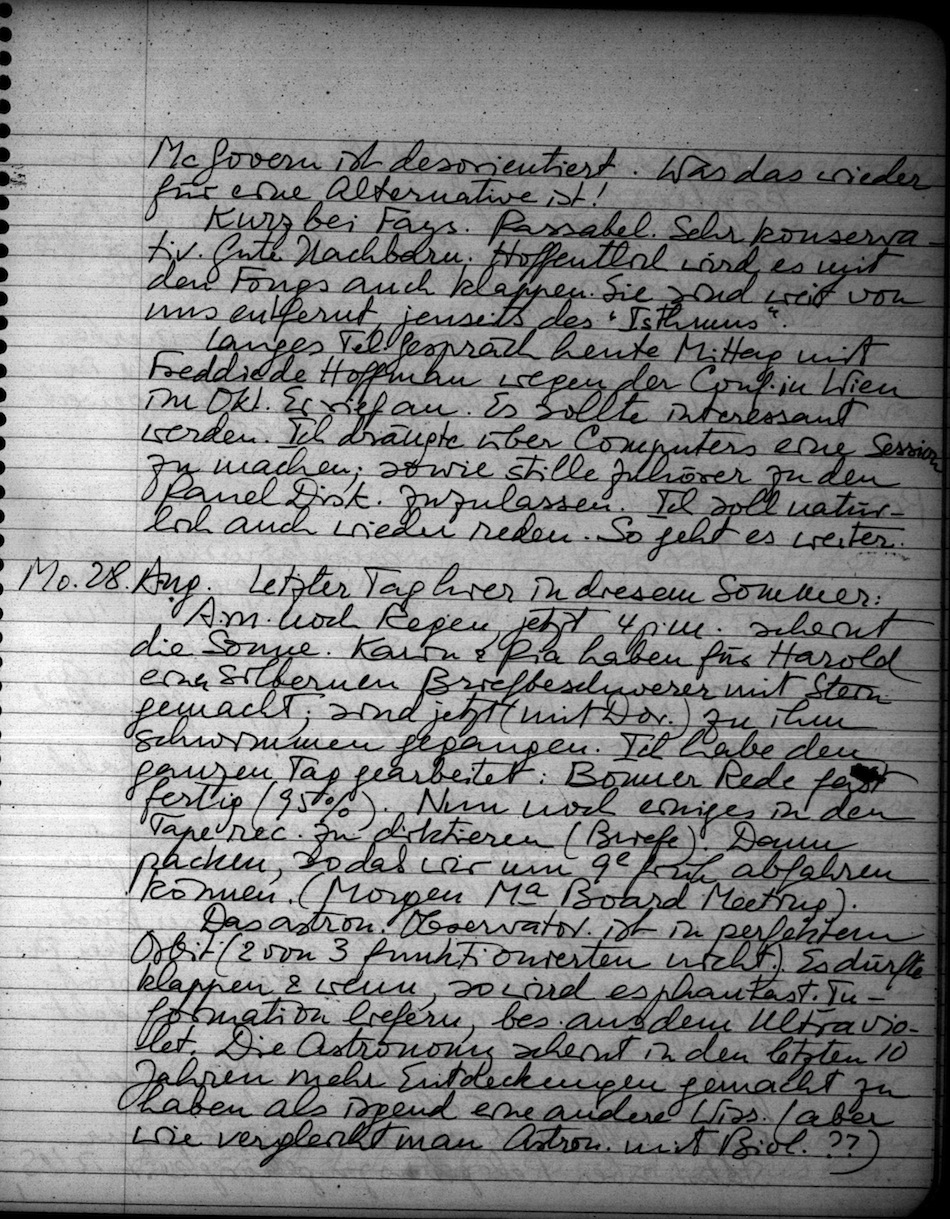 McGovern ist desorientiert. Was das wieder
für eine Alternative ist!
Kurz bei Fays. Passabel. Sehr konserva-
tiv. Gute Nachbarn. Hoffentlich wird es mit
den Fongs auch klappen. Sie sind weit von
uns entfernt jenseits des "Isthmus".
Langes Tel. Gespräch heute Mittag mit
Freddie de Hoffman wegen der Conf. in Wien
im Okt. Er rief an. Es sollte interessant
werden. Ich drängte über Computers eine Session
zu machen; sowie stille Zuhörer zu den
Panel Disk. zuzulassen. Ich soll natür-
lich auch wieder reden. So geht es weiter.
Mo. 28. Aug. Letzter Tag hier in diesem Sommer:
A.m. noch Regen, jetzt 4 p.m. scheint
die Sonne. Karin & Pia haben für Harold
einen silbernen Briefbeschwerer mit Stein
gemacht; sind jetzt (mit Dor.) zu ihm
schwimmen gegangen. Ich habe den
ganzen Tag gearbeitet: Bonner Rede fast
fertig (95%). Nun noch einiges in den
Tape rec. zu diktieren (Briefe). Dann
packen, sodas wir um 9e früh abfahren
können. (Morgen Ma Board Meeting).
Das astron. Observator. ist in perfektem
Orbit (2 von 3 funktionierten nicht). Es dürfte
klappen & wenn, so wird es phantast. In-
formation liefern, bes. aus dem Ultravio-
let. Die Astronomy scheint in den letzten 10
Jahren mehr Entdeckungen gemacht zu
haben als irgend eine andere Wiss. (aber
wie vergleicht man Astron. mit Biol. ??)